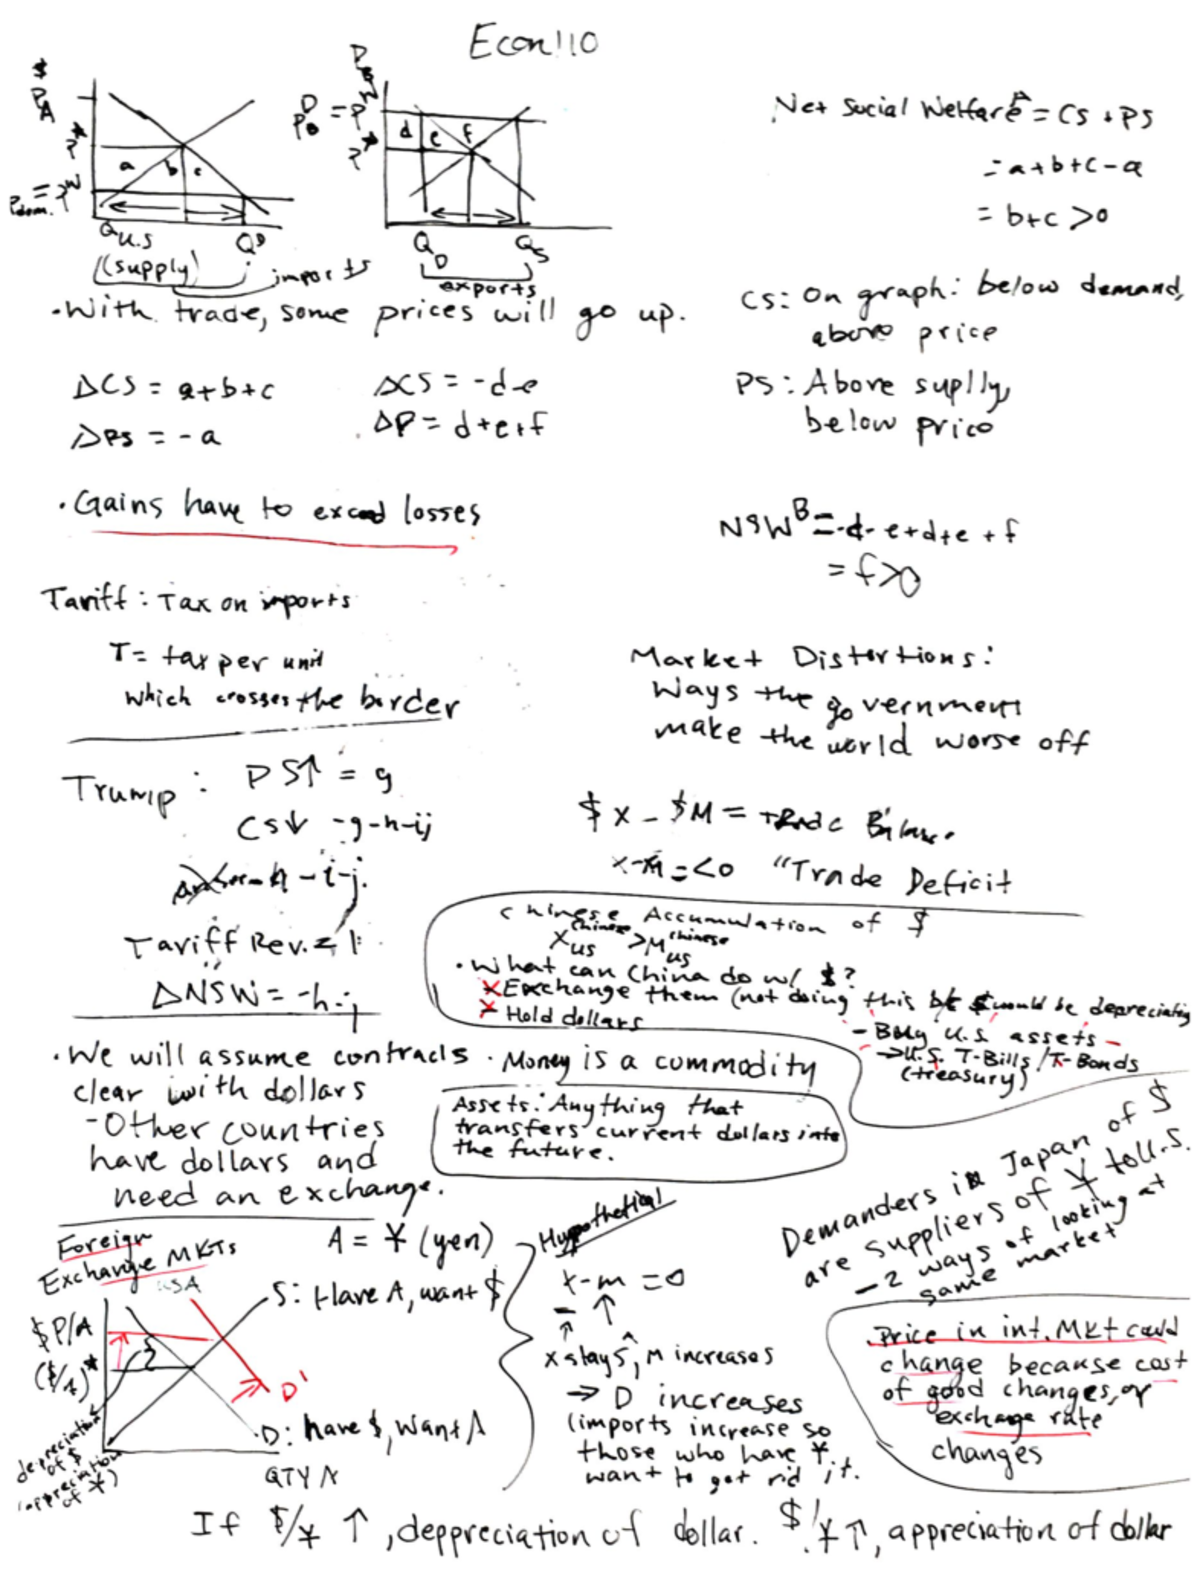 Econ 110
$
P_A
P*
P_dom. = P^W
a b c
Q_U.S
(supply)
Q^D
imports
P_B
P_B^D = P^W
P*
d e f
Q_D
Q_S
exports
Net Social Welfare^A = CS + PS
= a+b+c-a
= b+c >0
· With trade, some prices will go up.
CS: On graph: below demand,
above price
ΔCS = a+b+c
ΔPS = -a
ΔCS = -d-e
ΔP = d+e+f
PS: Above suplly,
below price
· Gains have to exceed losses
NSW^B = -d-e+d+e+f
= f>0
Tariff: Tax on imports
T= tax per unit
which crosses the border
Market Distortions:
Ways the government
make the world worse off
Trump: PS↑ = g
CS↓ -g-h-ij
-h-i-j.
Tariff Rev. = i
ΔNSW = -h-j
$X - $M = Trade Balance.
x-m = <0 "Trade Deficit
Chinese Accumulation of $
X_US^Chinese > M_US^Chinese
· What can China do w/ $?
x Exchange them (not doing this b/c $ would be depreciating
x Hold dollars
- Buy U.S. assets -
→ U.S. T-Bills/T-Bonds
(treasury)
· We will assume contracts
clear with dollars
- Other countries
have dollars and
need an exchange.
· Money is a commodity
Assets: Anything that
transfers current dollars into
the future.
Demanders in Japan of $
are suppliers of ¥ to U.S.
- 2 ways of looking at
same market
Foreign
Exchange MKTs
A = ¥ (yen)
USA
$P/A
($/¥)*
S: Have A, want $
D'
D: have $, want A
QTY A
depreciation
of $
(appreciation
of ¥)
Hypothetical
x-m = 0
- ↑
↑
x stays, m increases
→ D increases
(imports increase so
those who have ¥
want to get rid it.
Price in int. MKt could
change because cost
of good changes, or
exchange rate
changes
If $/¥ ↑, deppreciation of dollar. $/¥↑, appreciation of dollar